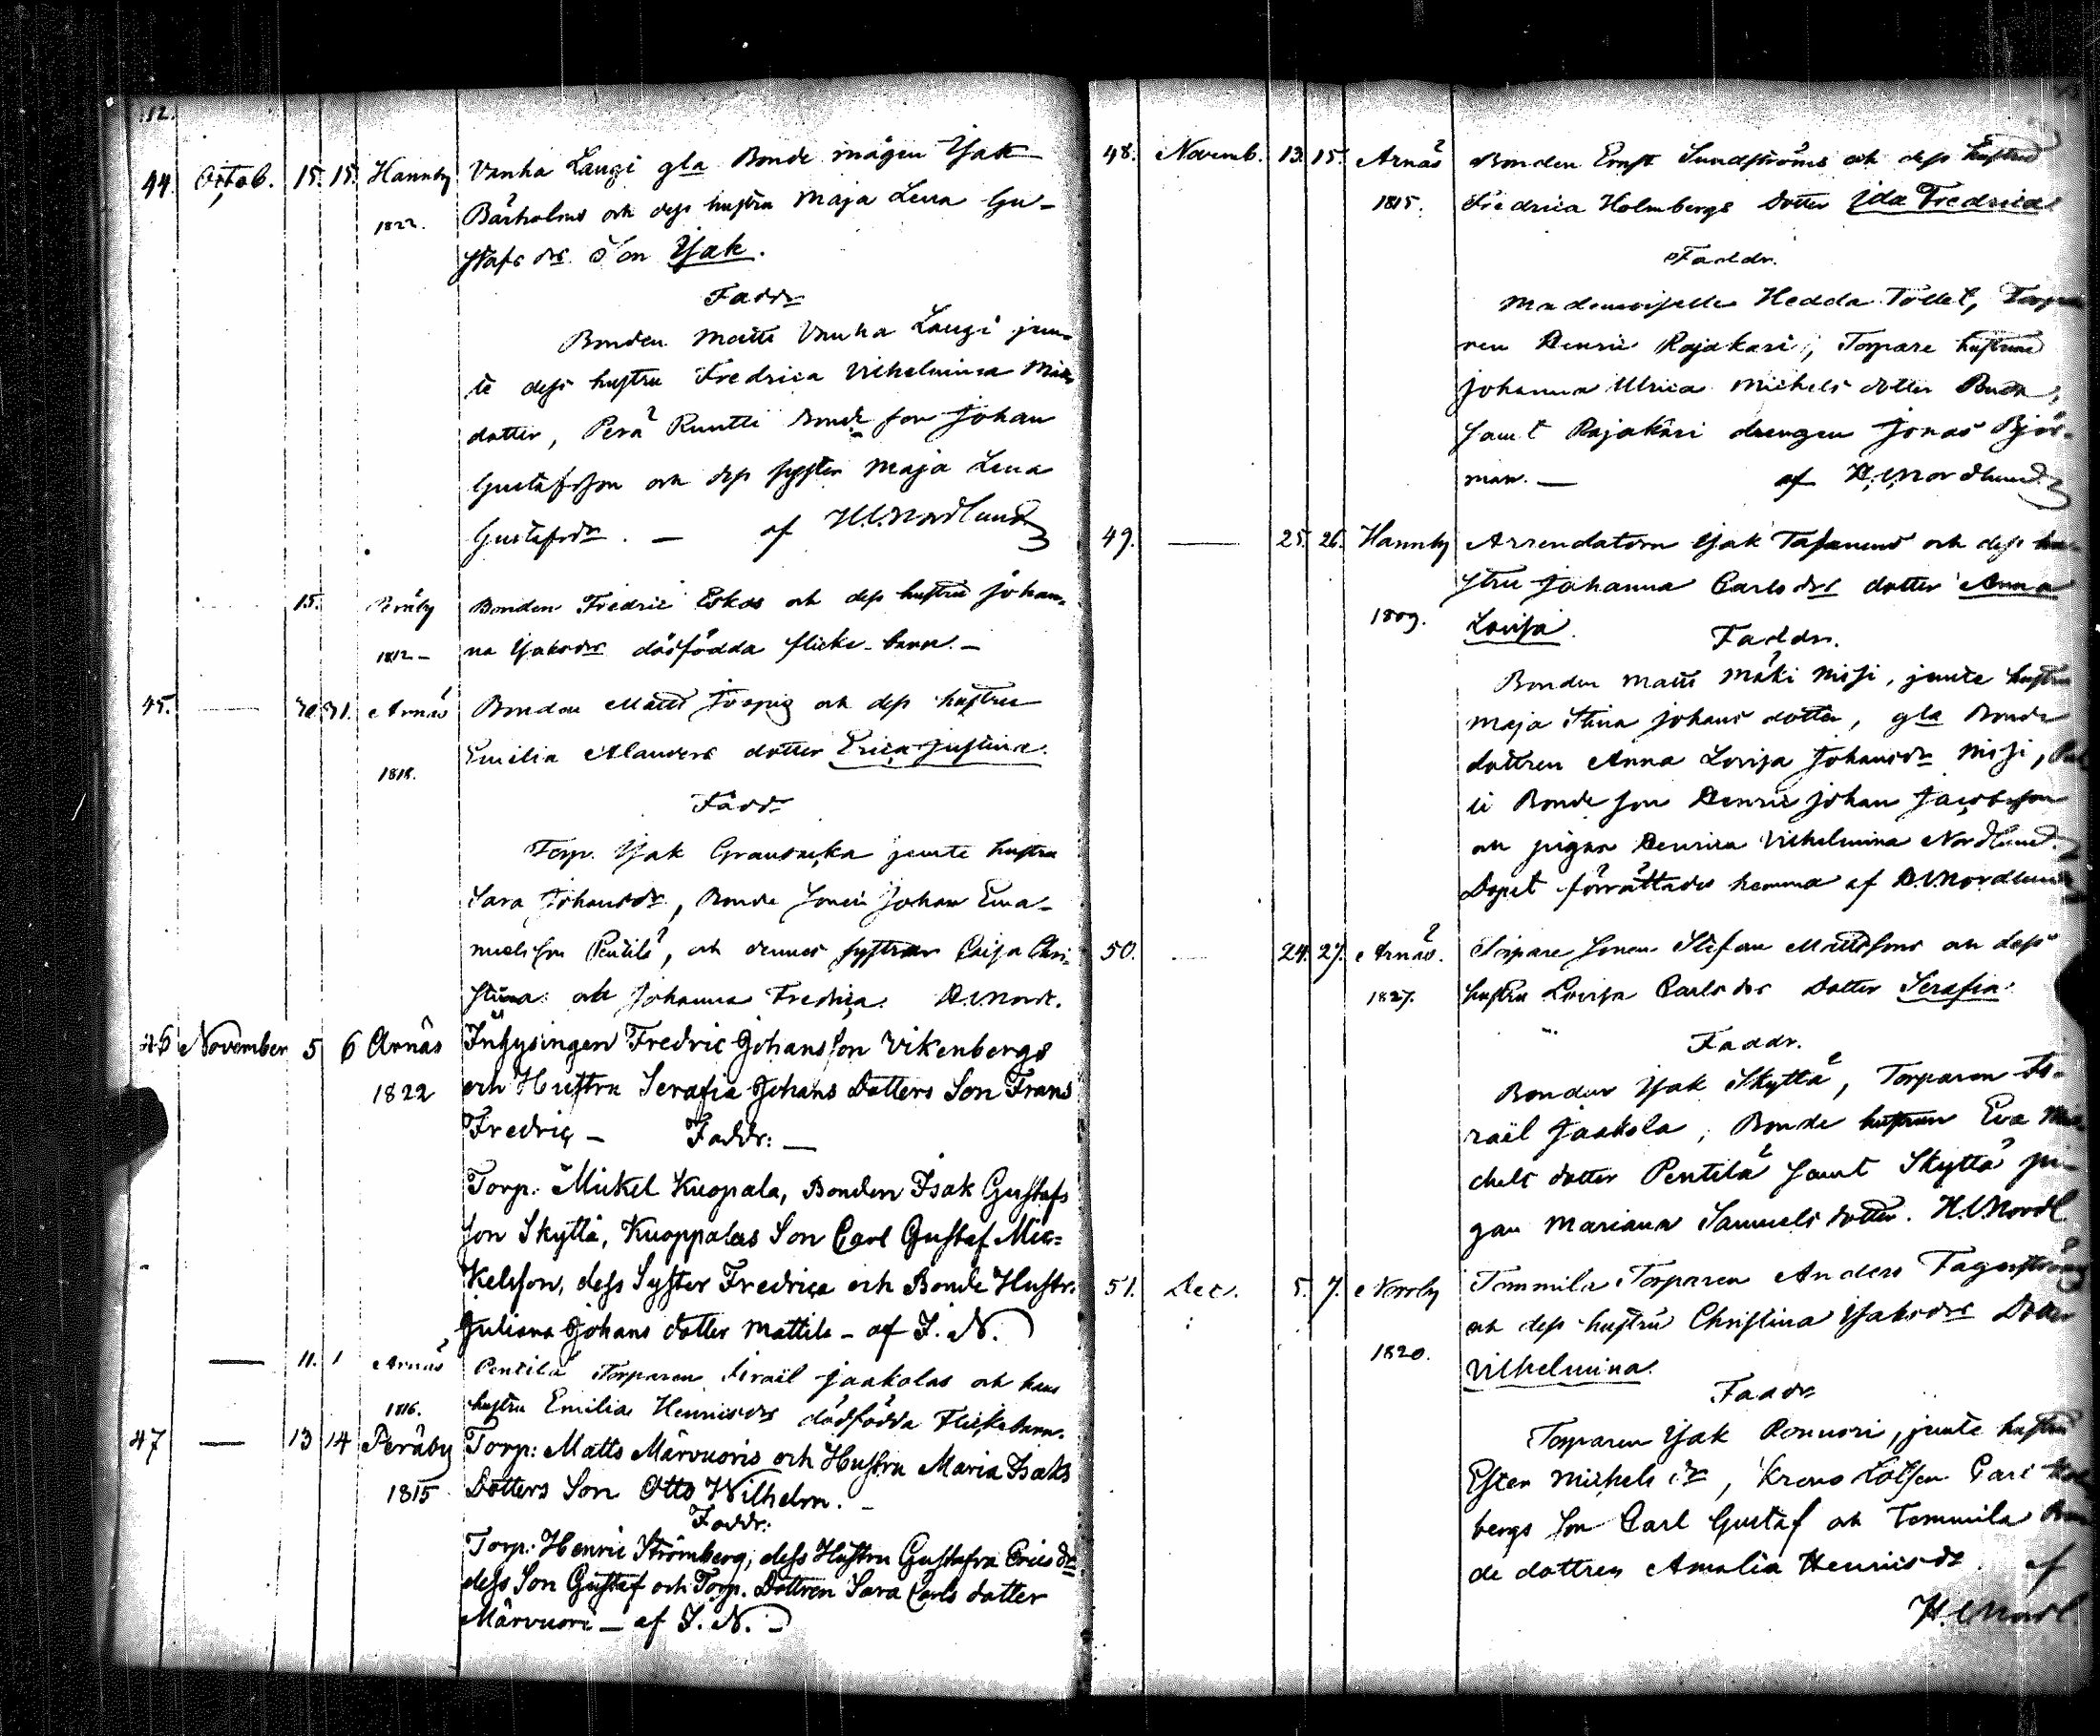 12.
44. Octob. 15. 15. Hannby Vanha Laugi gla Bonde mågen Isak
1822. Bärholms och dess hustru Maja Lena Gu-
stafs drs Son Isak.
Faddr
Bonden Matts Vanha Laugi jem-
te dess hustru Fredrica Vilhelmina Mats
dotter, Perä Runtti Bonde son Johan
Gustafsson och dess syster Maja Lena
Gustafsdr. — af H.C. Nordlund
15. Peräby Bonden Fredric Eskos och dess hustru Johan-
1812 — na Isaksdrs dödfödda flicke-barn. —
45. — 30. 31. Arnäs Bonden Matts och dess hustru
1818. Emilia Alanders dotter Erica Justina.
Faddr
Torp. Isak jemte hustru
Sara Johansdr, Bonde Sonen Johan Ema-
nuelsson Pentilä, och dennes systrar Caisa Chri-
stina och Johanna Fredrica. H.C. Nordl.
46 November 5 6 Arnäs Inhysingen Fredric Johansson Vikenbergs
1822 och Hustru Serafia Johans Dotters Son Frans
Fredric — Faddr: —
Torp: Mickel Kuopala, Bonden Isak Gustafs
son Skyttä, Kuoppalas Son Carl Gustaf Mic=
kelsson, dess Syster Fredrica och Bonde Hustr.
Juliana Johans dotter Mattila — af J. N.
— 11. 1 Arnäs Pentilä Torparen Israël Jaakolas och hans
1816. hustru Emilia Henricsdrs dödfödda Flickebarn.
47 — 13 14 Peräby Torp: Matts Märvuoris och Hustru Maria Isaks
1815 Dotters Son Otto Wilhelm. —
Faddr:
Torp: Henric Strömberg, dess Hustru Gustafva Ericsdr
dess Son Gustaf och Torp. Dottren Sara Carls dotter
Märvuori — af J. N.
48. Novemb. 13. 15. Arnäs Bonden Ernst Sundströms och dess hustru
1815. Fredrica Holmbergs Dotter Ida Fredrica
Faddr.
Mademoiselle Hedda Tollet, Torpa
ren Henric Rajakari, Torpare hustrun
Johanna Ulrica Michels dotter
samt Rajakari drengen Jonas Björ-
man. — af H.C. Nordlund
49. — 25. 26. Hannby Arrendatorn Isak Tapanens och dess hu-
stru Johanna Carlsdrs dotter Anna
1809. Lovisa. Faddr.
Bonden Matts Mäki Nissi, jemte hustru
Maja Stina Johans dotter, gla Bonde
dottren Anna Lovisa Johansdr Nissi,
Bonde son Henric Johan Jacobsson
och pigan Henrica Vilhelmina Nordlund.
Dopet förrättades hemma af H.C. Nordlund
50. — 24. 27. Arnäs. Torpare Sonen Stefan Mattssons och dess
1827. hustru Lovisa Carlsdrs Dotter Serafia.
Faddr.
Bonden Isak Skyttä, Torparen Is-
raël Jaakola, Bonde hustrun Eva Mi-
chels dotter Pentilä samt Skyttä pi-
gan Mariana Samuels dotter. H.C. Nordl.
51. Dec. 5. 7. Norrby Tommila Torparen Anders Fagerströms
och dess hustru Christina Isaksdrs Dotter
1820. Vilhelmina.
Faddr
Torparen Isak Ronuori, jemte hustru
Ester Michels dr, Krono Lotsen Carl
bergs son Carl Gustaf och Tommila Bon
de dottren Amalia Henricsdr. af
H.C. Nordl